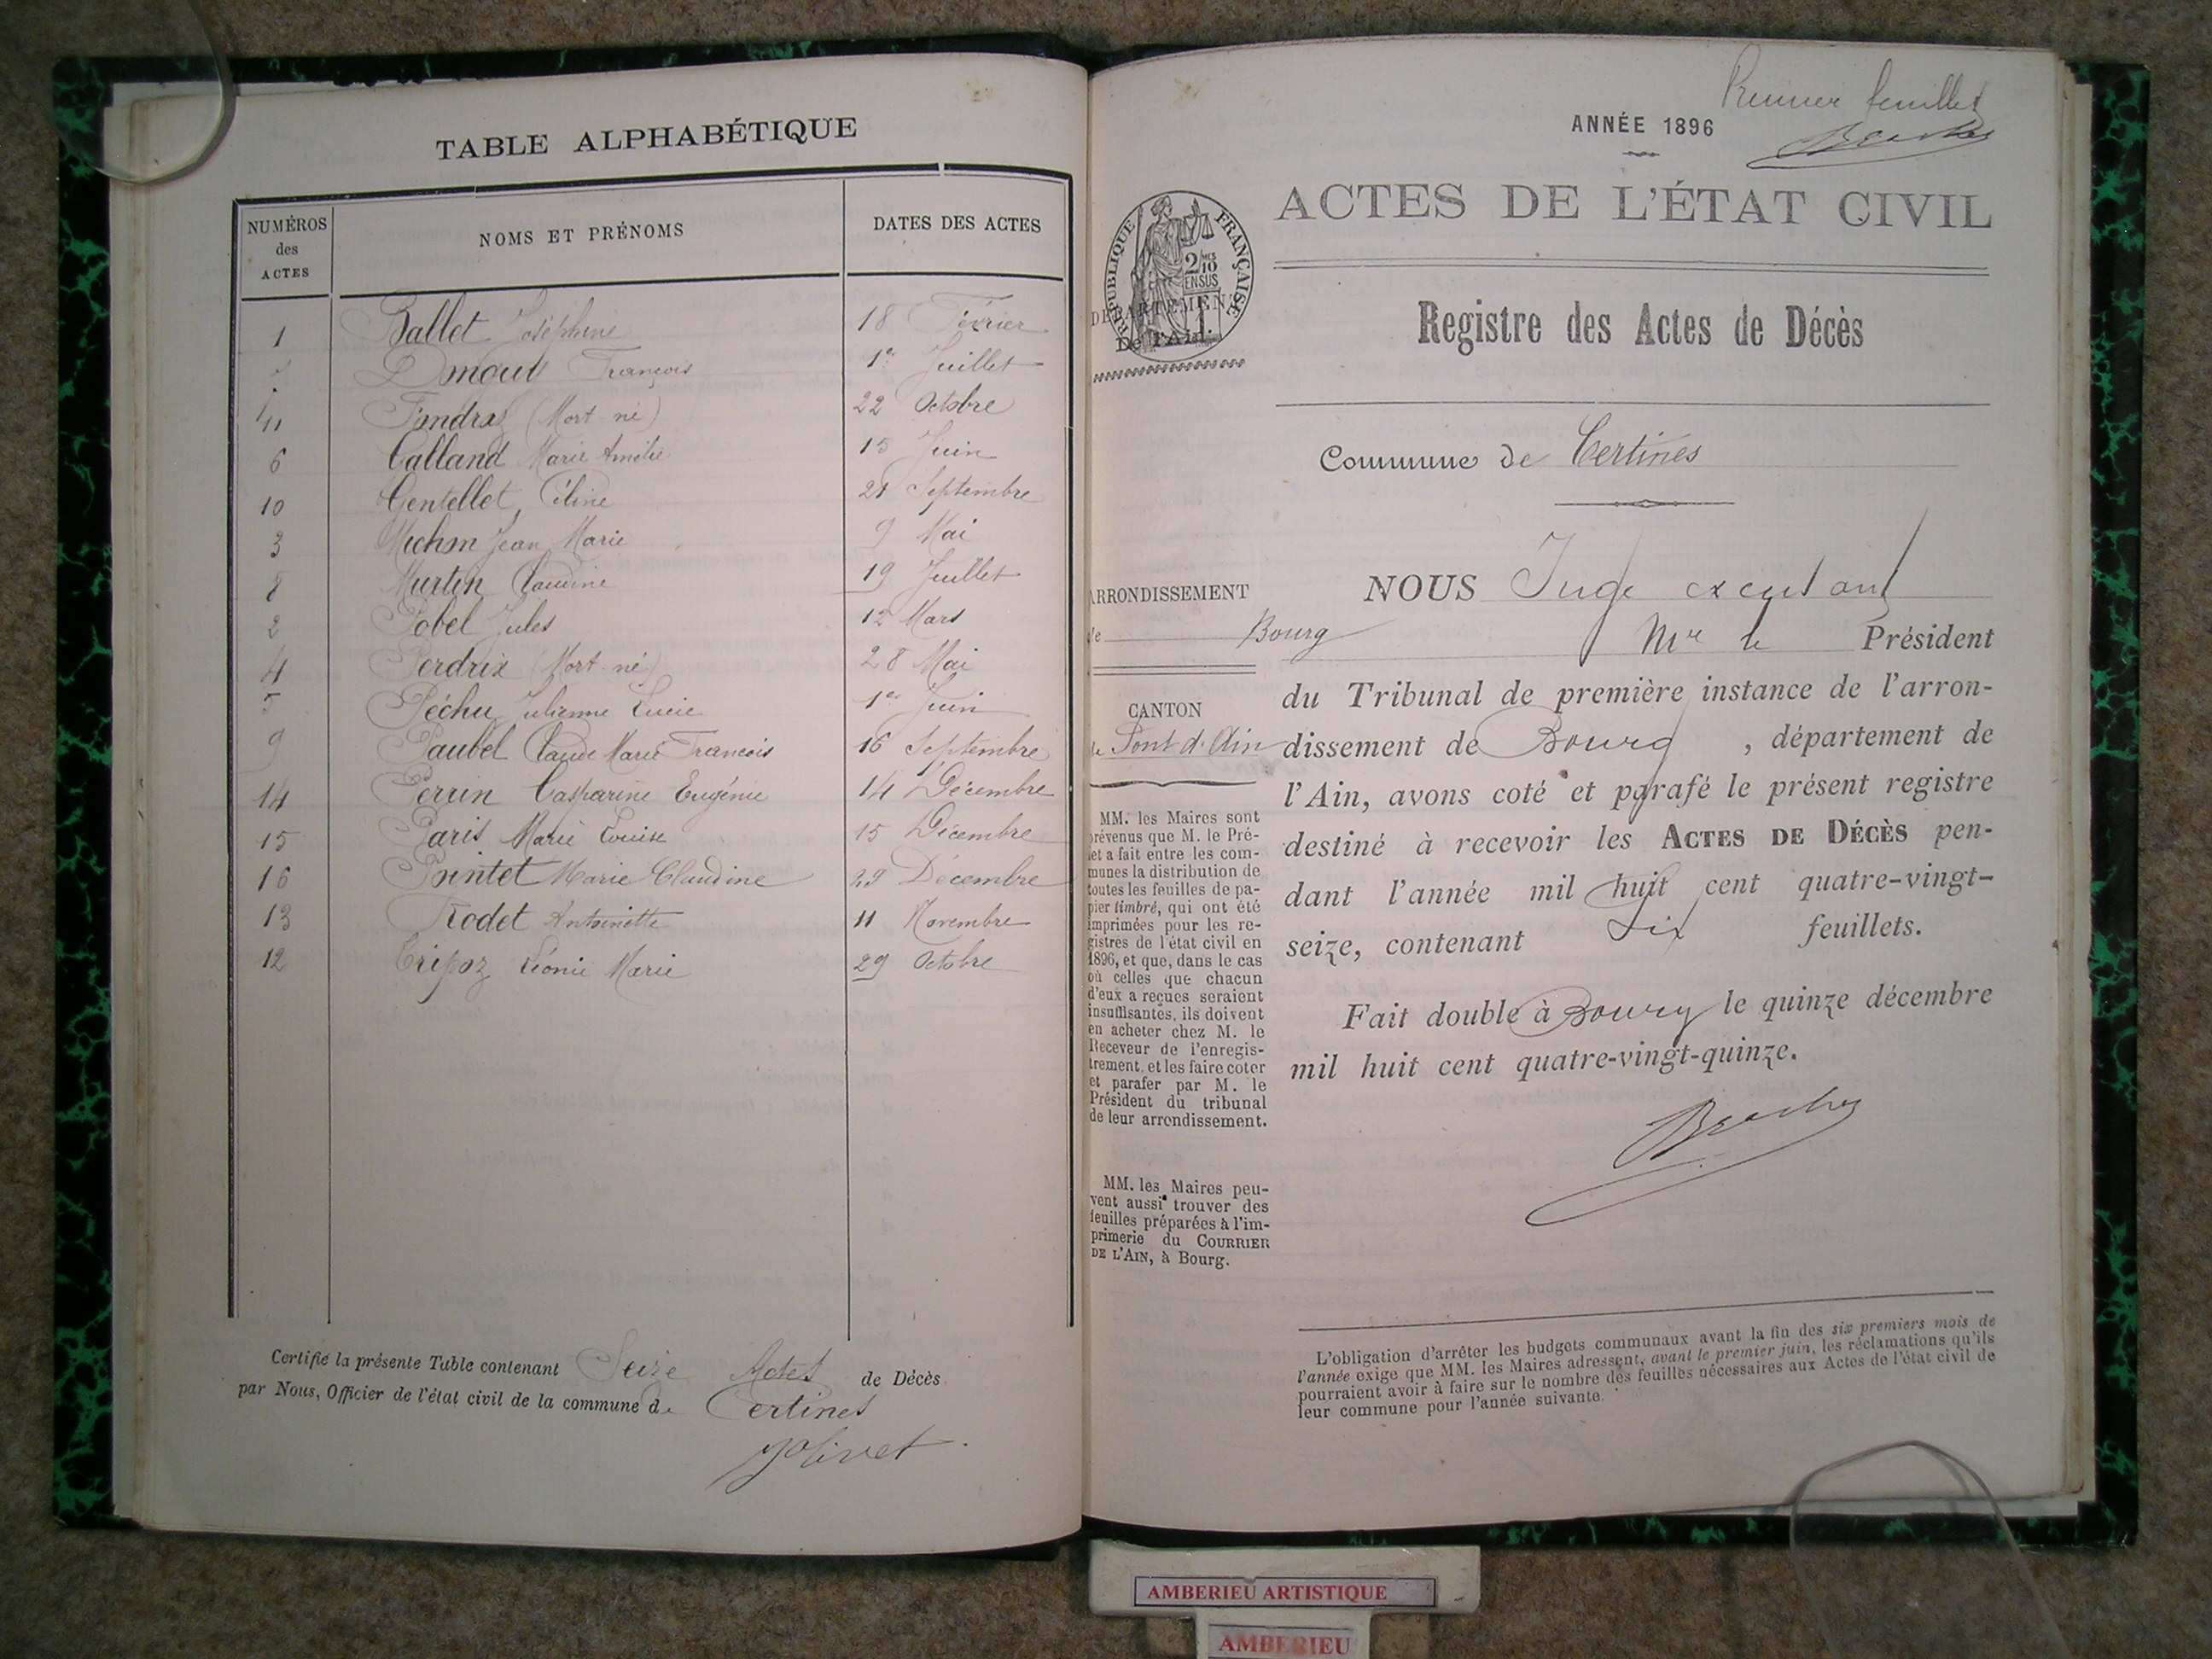 TABLE ALPHABÉTIQUE
NUMÉROS des ACTES
NOMS ET PRÉNOMS
DATES DES ACTES
1 Ballet Joséphine 18 Février
François 1er Juillet
11 (Mort né) 22 Octobre
6 Calland Marie Amélie 15 Juin
10 Gentellet Céline 21 Septembre
3 Jean Marie 9 Mai
8 Claudine 19 Juillet
2 Jules 12 Mars
4 Perdrix (Mort né) 28 Mai
5 Péchu Julienne Lucie 1er Juin
9 Paubel Claude Marie François 16 Septembre
14 Perrin Casparine Eugénie 14 Décembre
15 Paris Marie Louise 15 Décembre
16 Pointet Marie Claudine 29 Décembre
13 Rodet Antoinette 11 Novembre
12 Tripoz Léonie Marie 29 Octobre
Certifié la présente Table contenant Seize Actes de Décès
par Nous, Officier de l'état civil de la commune de Certines
Jolivet
Premier feuillet
ANNÉE 1896
ACTES DE L'ÉTAT CIVIL
RÉPUBLIQUE FRANÇAISE
2/10 EN SUS
DÉPARTEMENT
De l'Ain.
Registre des Actes de Décès
Commune de Certines
ARRONDISSEMENT
de Bourg
CANTON
de Pont d'Ain
MM. les Maires sont
prévenus que M. le Pré-
fet a fait entre les com-
munes la distribution de
toutes les feuilles de pa-
pier timbré, qui ont été
imprimées pour les re-
gistres de l'état civil en
1896, et que, dans le cas
où celles que chacun
d'eux a reçues seraient
insuffisantes, ils doivent
en acheter chez M. le
Receveur de l'enregis-
trement, et les faire coter
et parafer par M. le
Président du tribunal
de leur arrondissement.
MM. les Maires peu-
vent aussi trouver des
feuilles préparées à l'im-
primerie du COURRIER
DE L'AIN, à Bourg.
NOUS Juge excusant
Mr le Président
du Tribunal de première instance de l'arron-
dissement de Bourg, département de
l'Ain, avons coté et parafé le présent registre
destiné à recevoir les ACTES DE DÉCÈS pen-
dant l'année mil huit cent quatre-vingt-
seize, contenant Six feuillets.
Fait double à Bourg le quinze décembre
mil huit cent quatre-vingt-quinze.
L'obligation d'arrêter les budgets communaux avant la fin des six premiers mois de
l'année exige que MM. les Maires adressent, avant le premier juin, les réclamations qu'ils
pourraient avoir à faire sur le nombre des feuilles nécessaires aux Actes de l'état civil de
leur commune pour l'année suivante.
AMBERIEU ARTISTIQUE
AMBERIEU